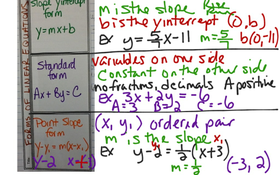 Slope Intercept
form
y=mx+b
m is the slope
b is the y intercept (0, b)
Ex y = 5/7 x - 11 m = 5/7 b(0, -11)
FORMS OF LINEAR EQUATIONS
Standard
form
Ax + By = C
Variables on one side
Constant on the other side
no fractions, decimals A positive
Ex 3x + 2y = -6
A=3 B=2 C=-6
Point Slope
form
y-y₁=m(x-x₁)
y-2 x+
(x, y,) ordered pair
m is the slope x,
Ex y-2 = 1/2 (x+3)
m = 1/2 (-3, 2)